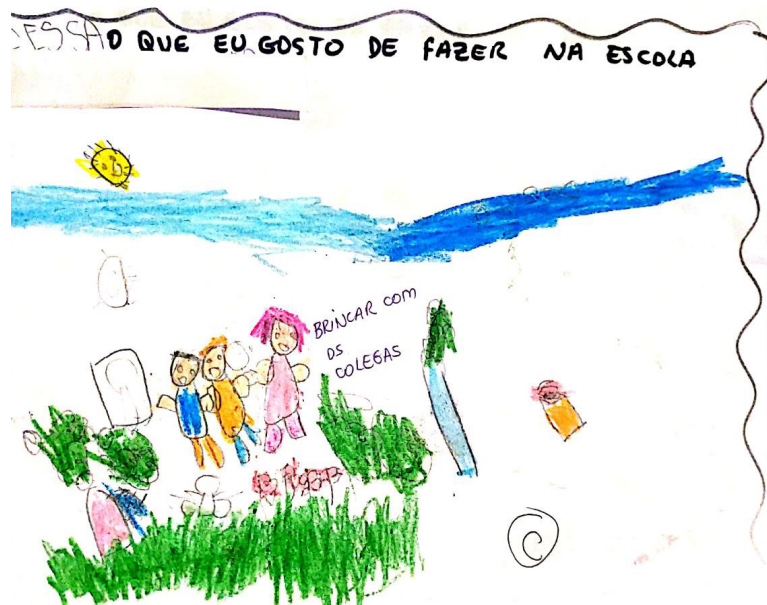 ESSA O QUE EU GOSTO DE FAZER NA ESCOLA
BRINCAR COM
OS
COLEGAS